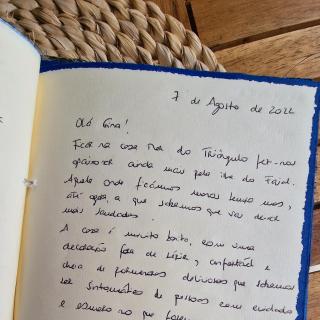 7 de Agosto de 2022
Olá Gina!
Ficar na casa Mar do Triângulo fez-nos
apaixonar ainda mais pela ilha do Faial.
Aquela onde ficámos menos tempo mas,
até agora, a que achamos que vai deixar
mais saudades.
A casa é muito bonita, com uma
decoração fora de série, confortável e
cheia de pormenores deliciosos que achamos
ser sintomáticos de pessoas com cuidado
e esmero no que fazem